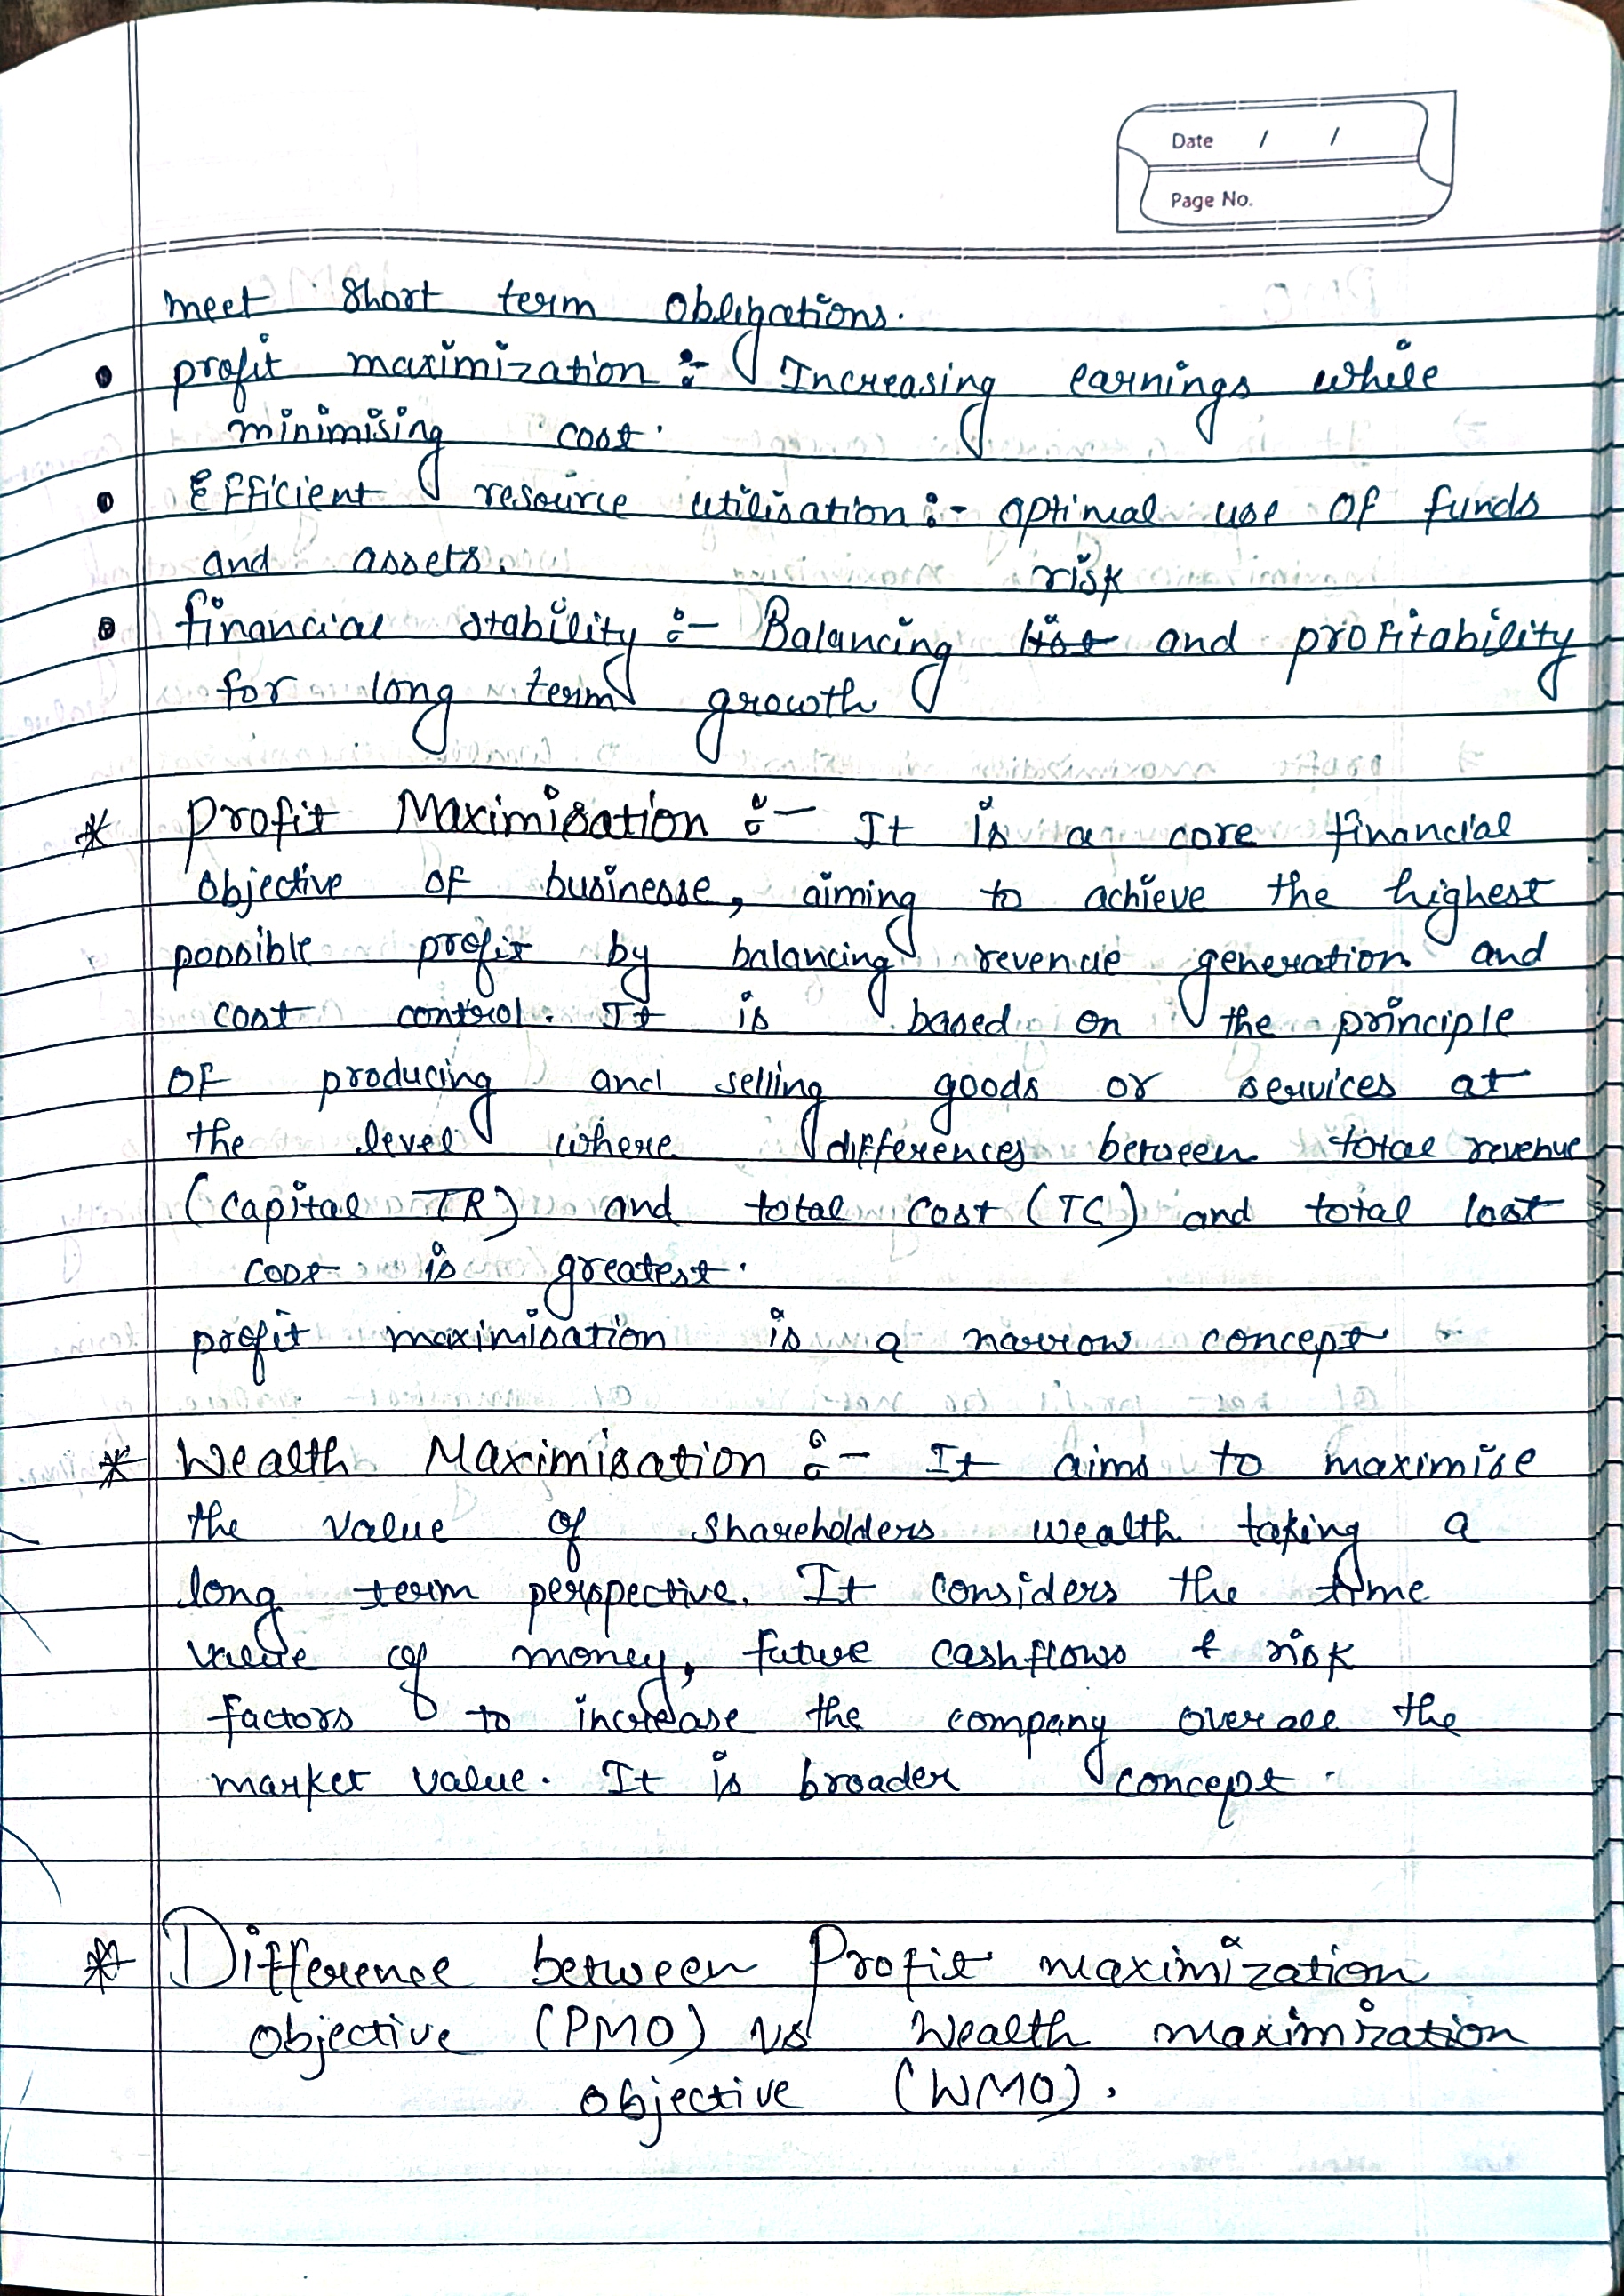 Date / /
Page No.
meet short term obligations.
• profit maximization :- Increasing earnings while
minimising cost.
• Efficient resource utilisation :- optimal use of funds
and assets.
risk
• financial stability :- Balancing and profitability
for long term growth
* Profit Maximisation :- It is a core financial
objective of businesse, aiming to achieve the highest
possible profit by balancing revenue generation and
cost control. It is based on the principle
of producing and selling goods or services at
the level where differences between total revenue
(capital TR) and total cost (TC) and total lost
cost is greatest.
profit maximisation is a narrow concept
* Wealth Maximisation :- It aims to maximise
the value of shareholders wealth taking a
long term perspective. It considers the time
value of money, future cashflows & risk
factors to increase the company over all the
market value. It is broader concept.
* Difference between Profit maximization
objective (PMO) vs Wealth maximization
objective (WMO).